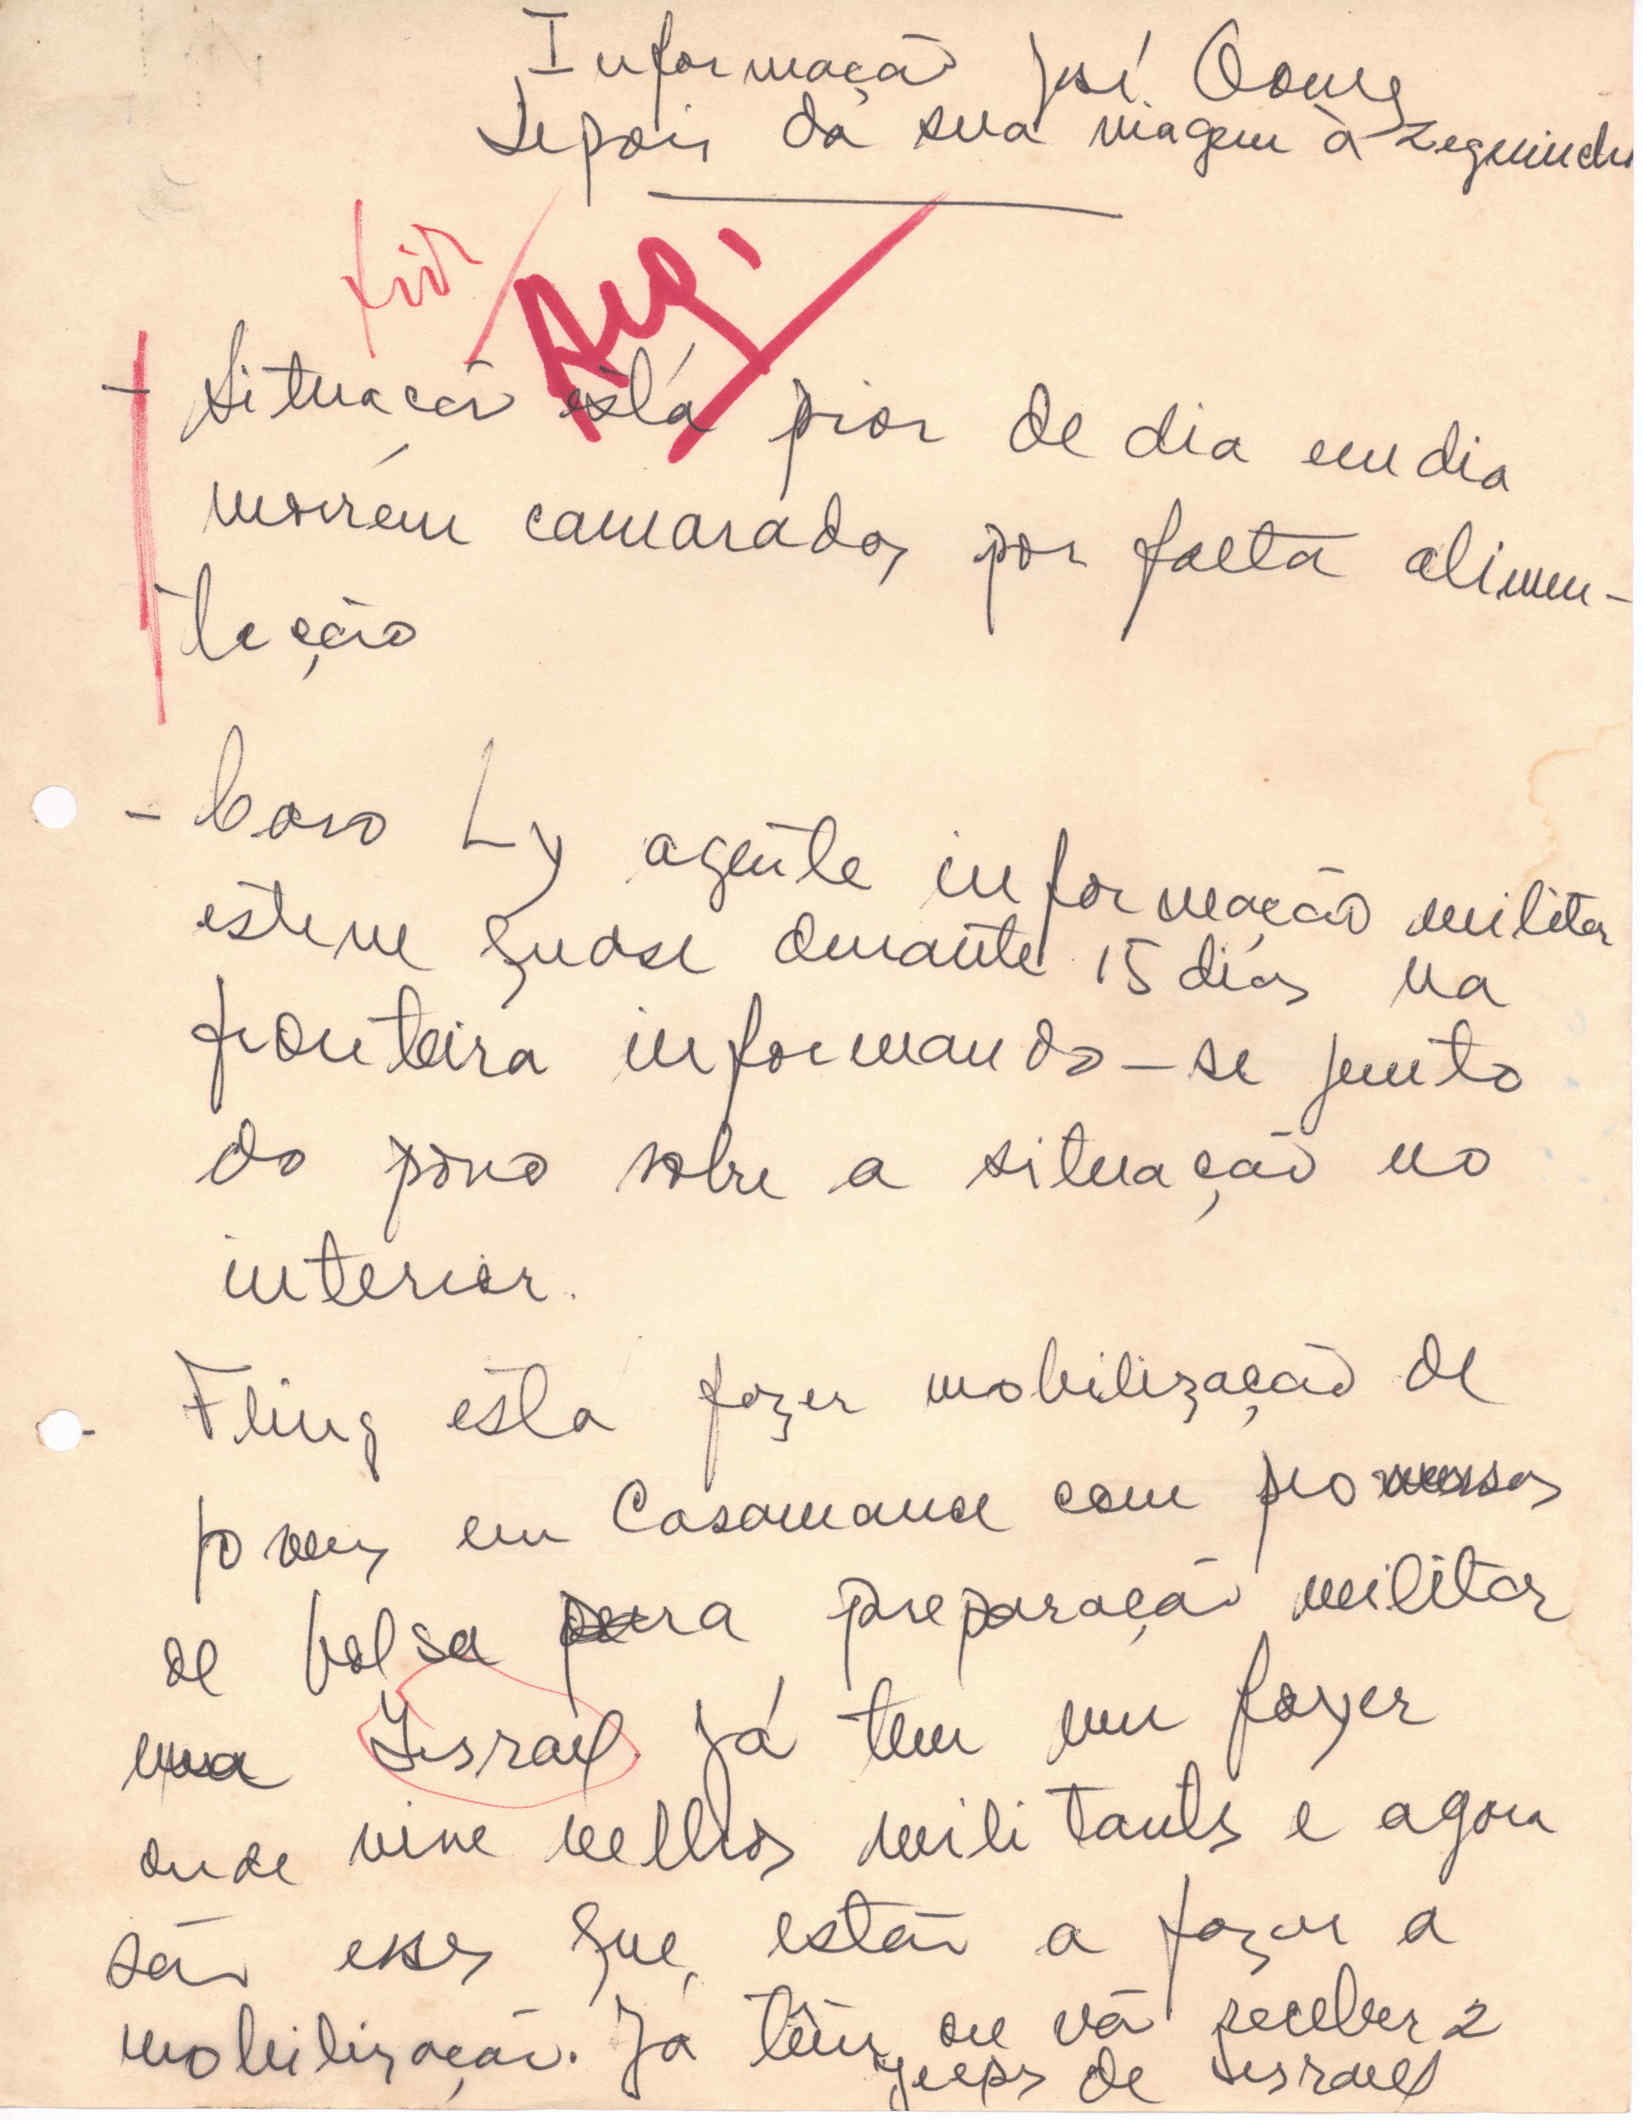 Informação José Gomes
depois da sua viagem à Zeguinchor
Arq.
- Situação está pior de dia em dia
morrem camaradas por falta alimen-
tação
- Caso Ly agente informação militar
esteve quase durante 15 dias na
fronteira informando-se junto
do povo sobre a situação no
interior.
- Fling está fazer mobilização de
jovens em Casamance com promessas
de bolsa para preparação militar
na Israel já tem um foyer
onde vive velhos militants e agora
são esses que estão a fazer a
mobilização. Já têm ou vão receber 2
jeeps de Israel